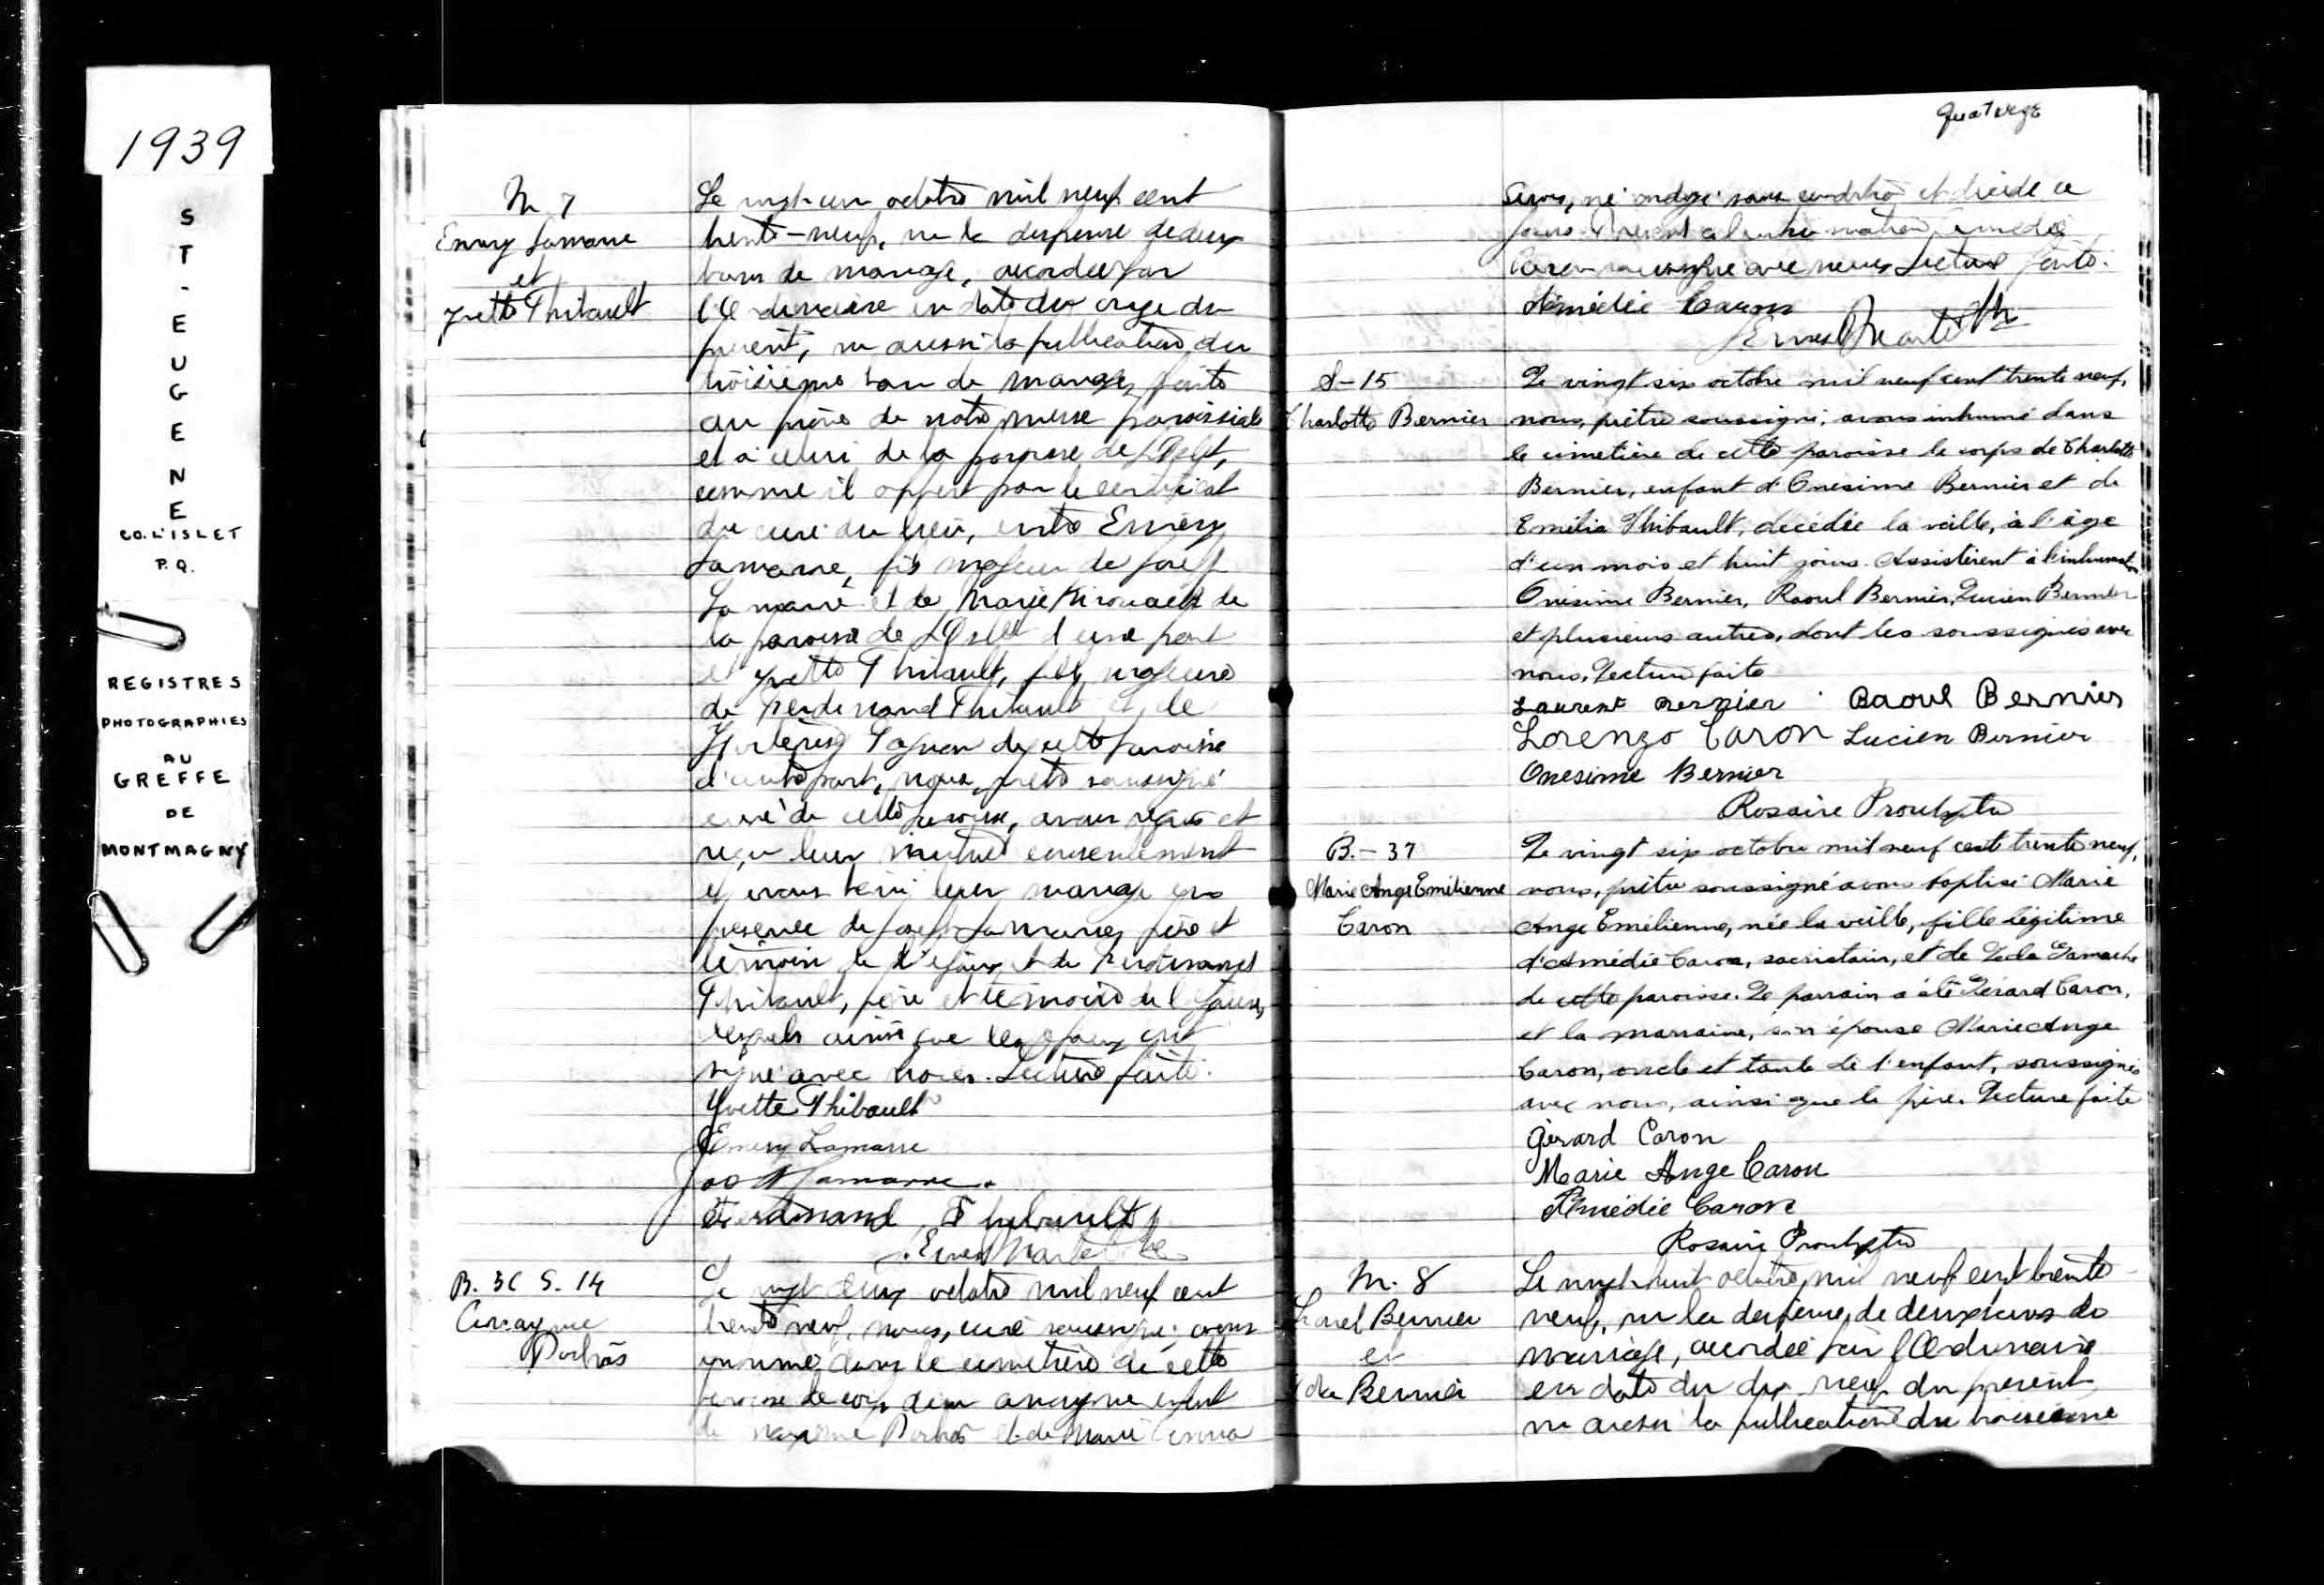 1939
ST-EUGENE
CO. L'ISLET
P.Q.
REGISTRES
PHOTOGRAPHIES
AU
GREFFE
DE
MONTMAGNY
M 7
Emery Lamarre
et
Yvette Thibault
Le vingt-un octobre mil neuf cent
trente-neuf, vu la dispense de deux
bans de mariage, accordée par
l'Ordinaire en date du onze du
présent, vu aussi la publication du
troisième ban de mariage, faite
au prône de notre messe paroissiale
et à celui de la paroisse de L'Islet,
comme il appert par le certificat
du curé du lieu, entre Emery
Lamarre, fils majeur de Joseph
Lamarre et de Marie Kirouack de
la paroisse de L'Islet d'une part
et Yvette Thibault, fille majeure
de Ferdinand Thibault et de
de cette paroisse
d'autre part, nous, prêtre soussigné
curé de cette paroisse, avons requis et
reçu leur mutuel consentement
et avons béni leur mariage en
présence de Joseph Lamarre, père et
témoin de l'époux et de Ferdinand
Thibault, père et témoin de l'épouse,
lesquels ainsi que les époux ont
signé avec nous. Lecture faite.
Yvette Thibault
Emery Lamarre
Jos Lamarre
Ferdinand Thibault
Ernest Martel Ptre
B. 36 S. 14
Anonyme
Le vingt deux octobre mil neuf cent
trente neuf, nous, curé soussigné avons
inhumé dans le cimetière de cette
paroisse le corps d'un anonyme enfant
de et de Marie Anna
quatorze
né ondoyé sous condition et décédé ce
jour. Présent à l'inhumation Amédée
Caron soussigné avec nous. Lecture faite.
Amédée Caron
Ernest Martel Ptre
S-15
Charlotte Bernier
Le vingt six octobre mil neuf cent trente neuf,
nous, prêtre soussigné, avons inhumé dans
le cimetière de cette paroisse le corps de Charlotte
Bernier, enfant d'Onesime Bernier et de
Emélia Thibault, décédée la veille, à l'âge
d'un mois et huit jours. Assistèrent à l'inhumation
Onésime Bernier, Raoul Bernier, Lucien Bernier
et plusieurs autres, dont les soussignés avec
nous, Lecture faite
Laurent Bernier Raoul Bernier
Lorenzo Caron Lucien Bernier
Onesime Bernier
Rosaire Proulx ptre
B.-37
Marie Ange Emélienne
Caron
Le vingt six octobre mil neuf cent trente neuf,
nous, prêtre soussigné avons baptisé Marie
Ange Emélienne, née la veille, fille légitime
d'Amédée Caron, sacristain, et de Gamache
de cette paroisse. Le parrain a été Gérard Caron,
et la marraine, son épouse Marie Ange
Caron, oncle et tante de l'enfant, soussignés
avec nous, ainsi que le père. Lecture faite
Gérard Caron
Marie Ange Caron
Amédée Caron
Rosaire Proulx ptre
M. 8
Lionel Bernier
et
Bernier
Le vingt-huit octobre, mil neuf cent trente-
neuf, vu la dispense de deux bans de
mariage, accordée par l'Ordinaire
en date du dix-neuf du présent
vu aussi la publication du troisième